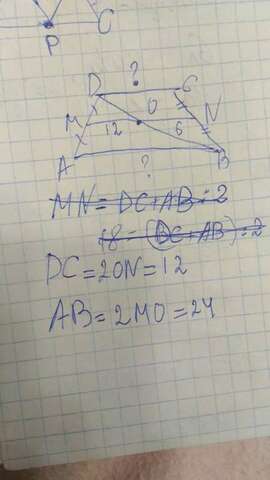 P C
D ? C
M 12 O 6 N
A ? B
MN = DC + AB : 2
18 = (DC + AB) : 2
DC = 2ON = 12
AB = 2MO = 24